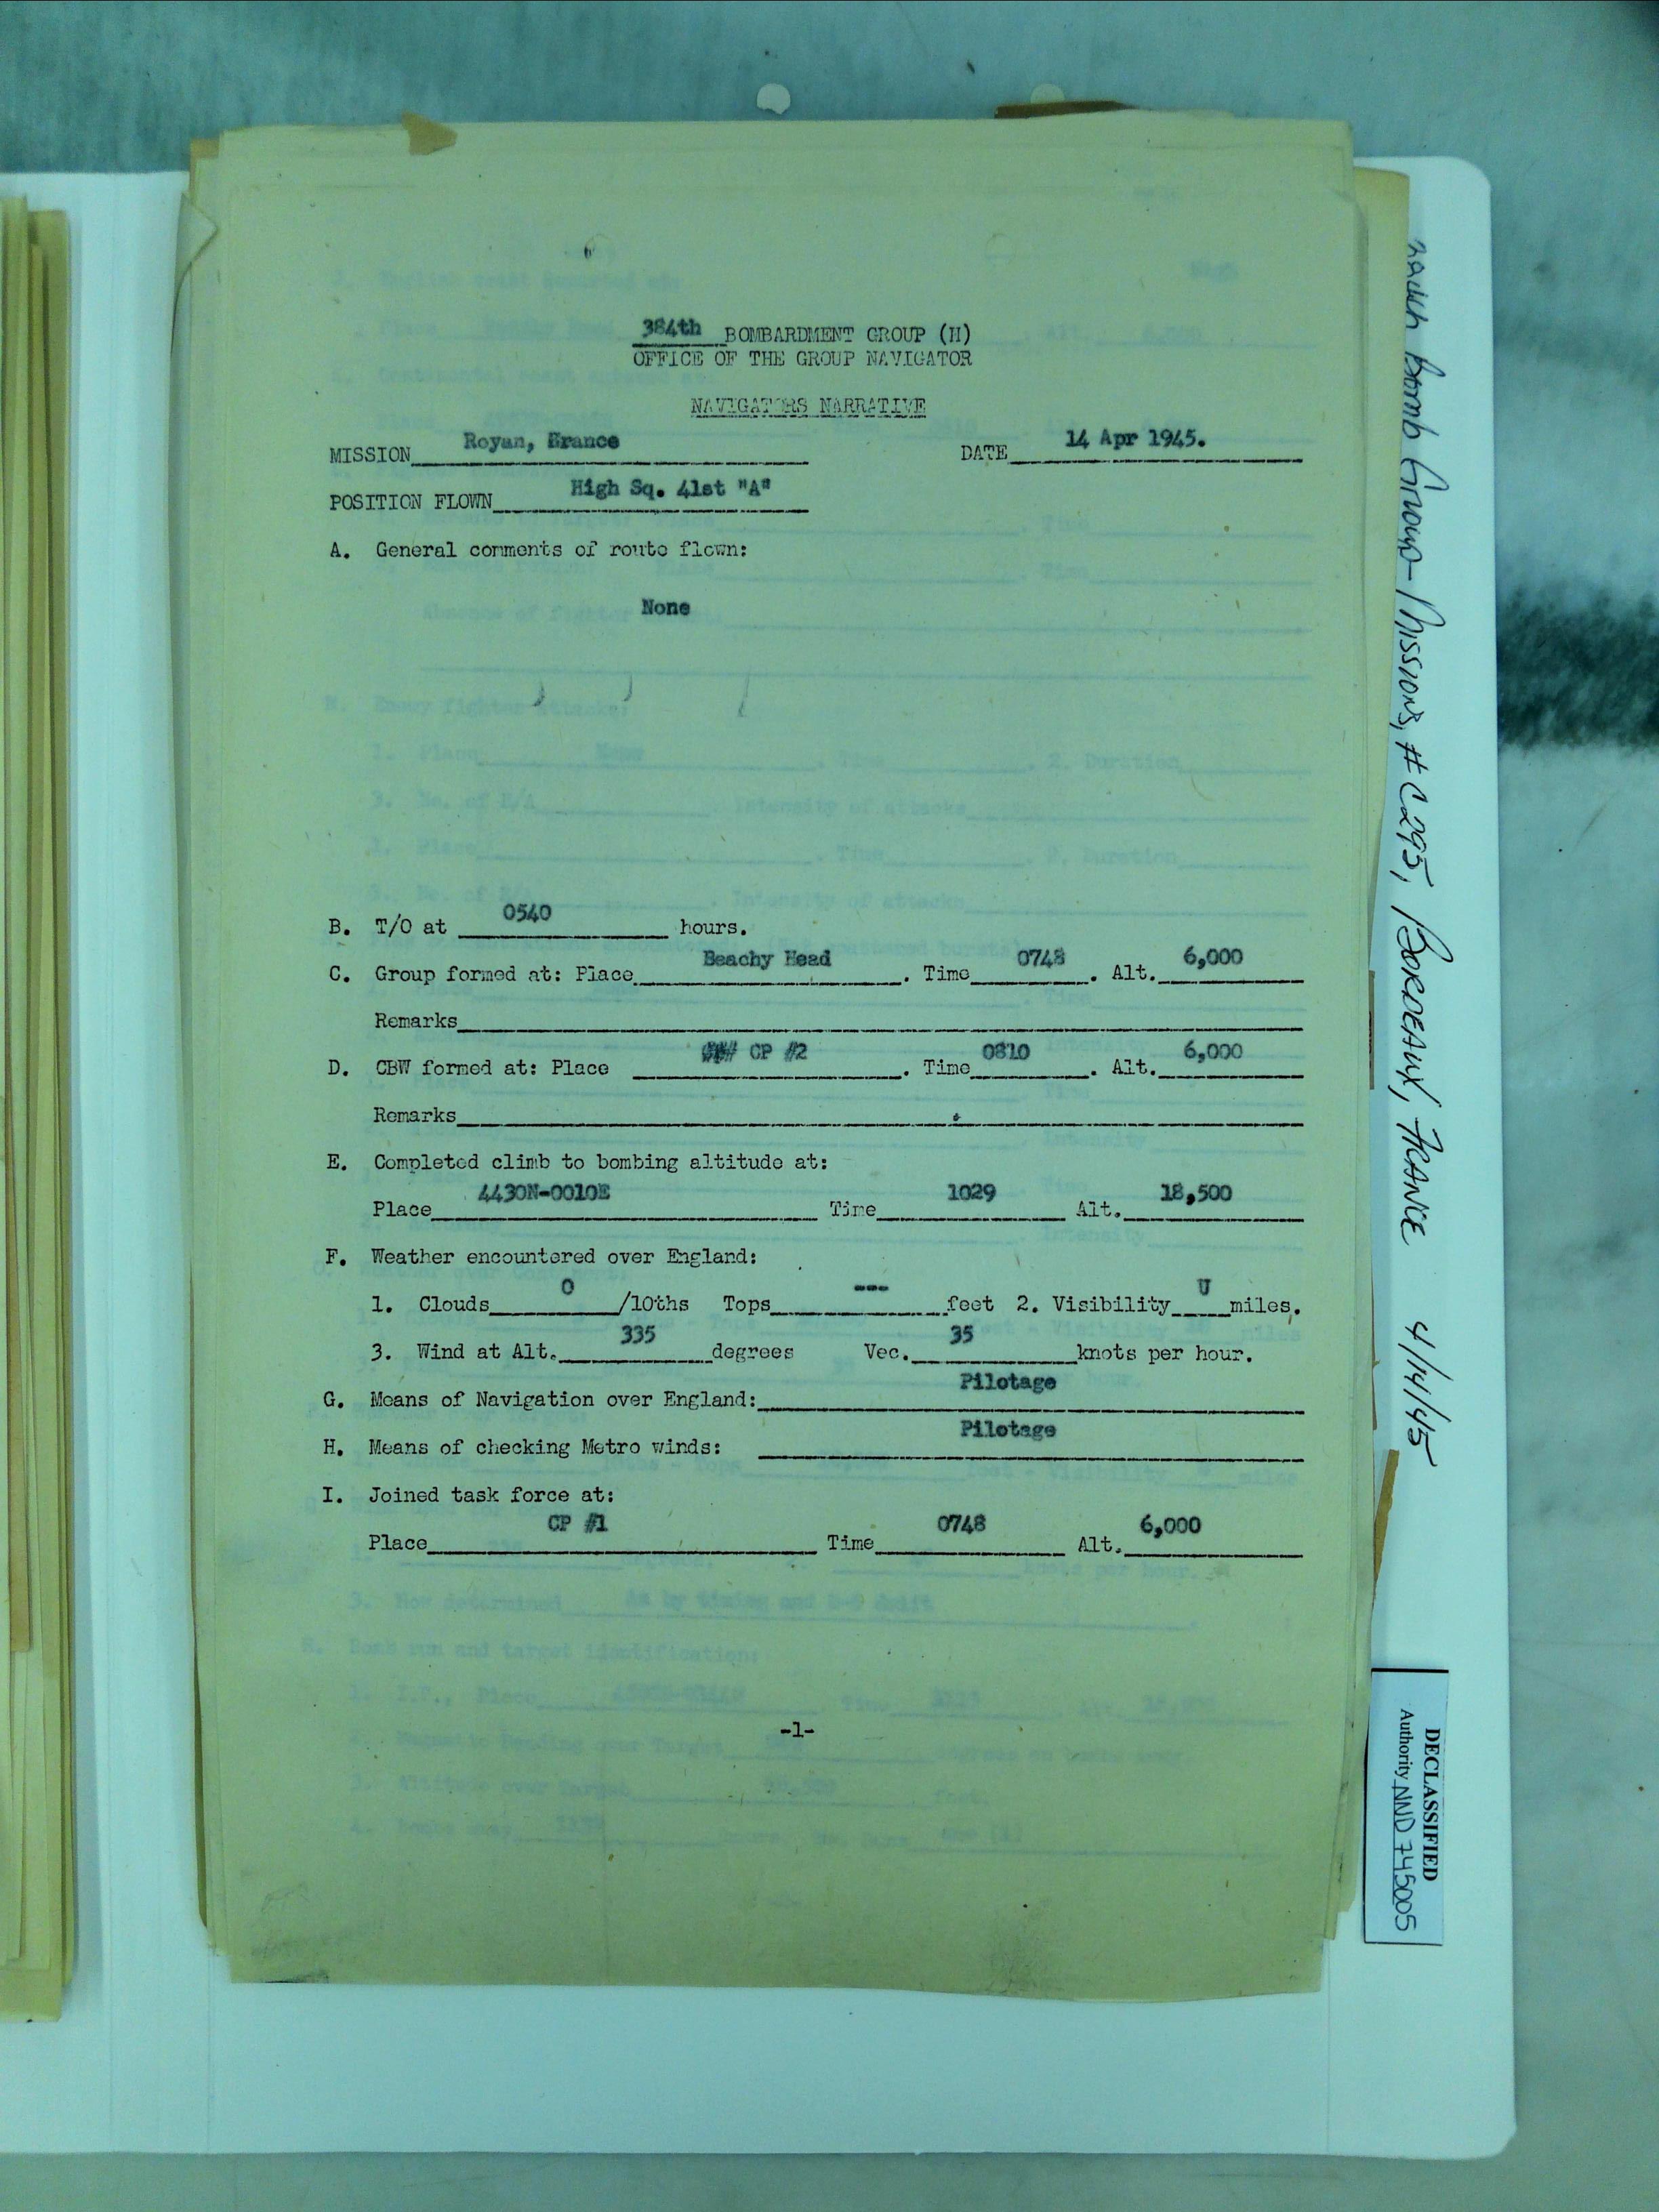 384th BOMBARDMENT GROUP (H)
OFFICE OF THE GROUP NAVIGATOR
NAVIGATORS NARRATIVE
MISSION Royan, Erance DATE 14 Apr 1945.
POSITION FLOWN High Sq. 41st "A"
A. General comments of route flown:
None
B. T/O at 0540 hours.
C. Group formed at: Place Beachy Head. Time 0748. Alt. 6,000
Remarks
D. CBW formed at: Place CP #2. Time 0810. Alt. 6,000
Remarks
E. Completed climb to bombing altitude at:
Place 4430N-0010E Time 1029 Alt. 18,500
F. Weather encountered over England:
1. Clouds 0 /10ths Tops --- feet 2. Visibility U miles.
3. Wind at Alt. 335 degrees Vec. 35 knots per hour.
G. Means of Navigation over England: Pilotage
H. Means of checking Metro winds: Pilotage
I. Joined task force at:
Place CP #1 Time 0748 Alt. 6,000
-1-
Bomb Group- Missions, #C295, BORDEAUX, FRANCE 4/14/45
DECLASSIFIED
Authority NND 745005